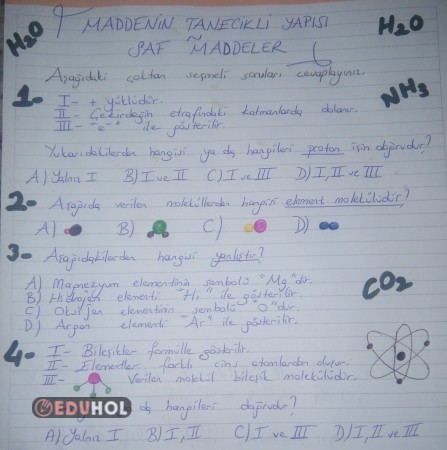 H2O
MADDENİN TANECİKLİ YAPISI
~
SAF MADDELER
H2O
Aşağıdaki çoktan seçmeli soruları cevaplayınız.
1- I- + yüklüdür.
II- Çekirdeğin etrafındaki katmanlarda dolanır.
III- "e-" ile gösterilir.
NH3
Yukarıdakilerden hangisi ya da hangileri proton için doğrudur?
A) Yalnız I B) I ve II C) I ve III D) I, II ve III
2- Aşağıda verilen moleküllerden hangisi element molekülüdür?
A) B) C) D)
3- Aşağıdakilerden hangisi yanlıştır?
A) Magnezyum elementinin sembolü "Mg" dir.
B) Hidrojen elementi "Hi" ile gösterilir.
C) Oksijen elementinin sembolü "O" dur.
D) Argon elementi "Ar" ile gösterilir.
CO2
4- I- Bileşikler formülle gösterilir.
II- Elementler farklı cins atomlardan oluşur.
III- Verilen molekül bileşik molekülüdür.
EDUHOL
da hangileri doğrudur?
A) Yalnız I B) I, II C) I ve III D) I, II ve III